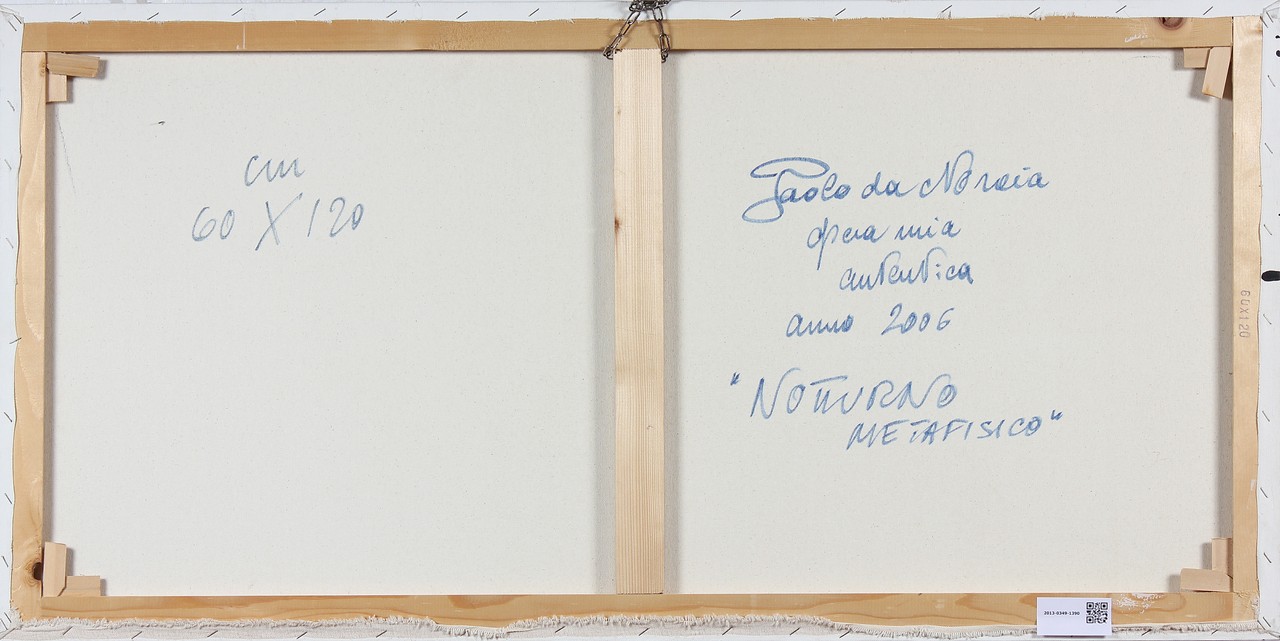 cm
60 X 120
Paolo da Norcia
opera mia
autentica
anno 2006
"NOTTURNO
METAFISICO"
60X120
2013-0349-1390